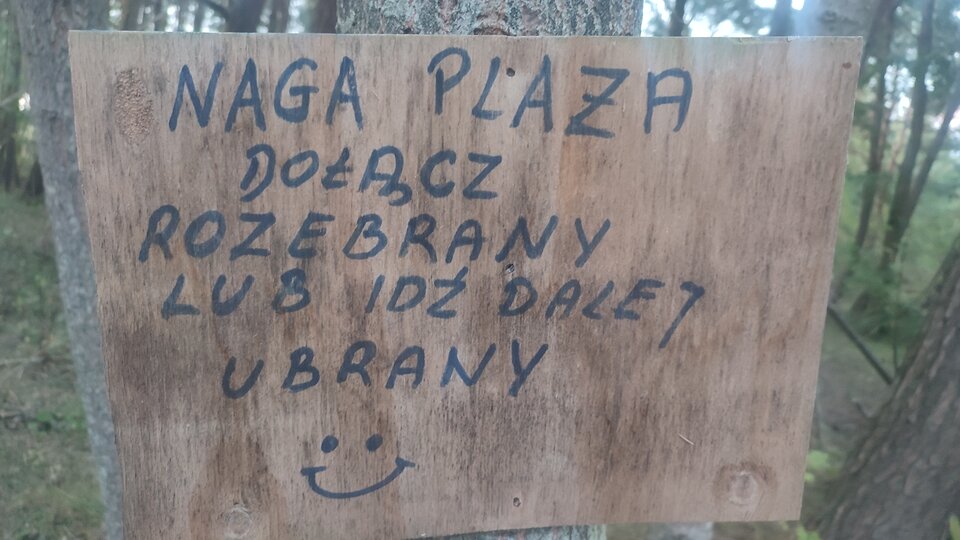 NAGA PLAŻA
DOŁĄCZ
ROZEBRANY
LUB IDŹ DALEJ
UBRANY